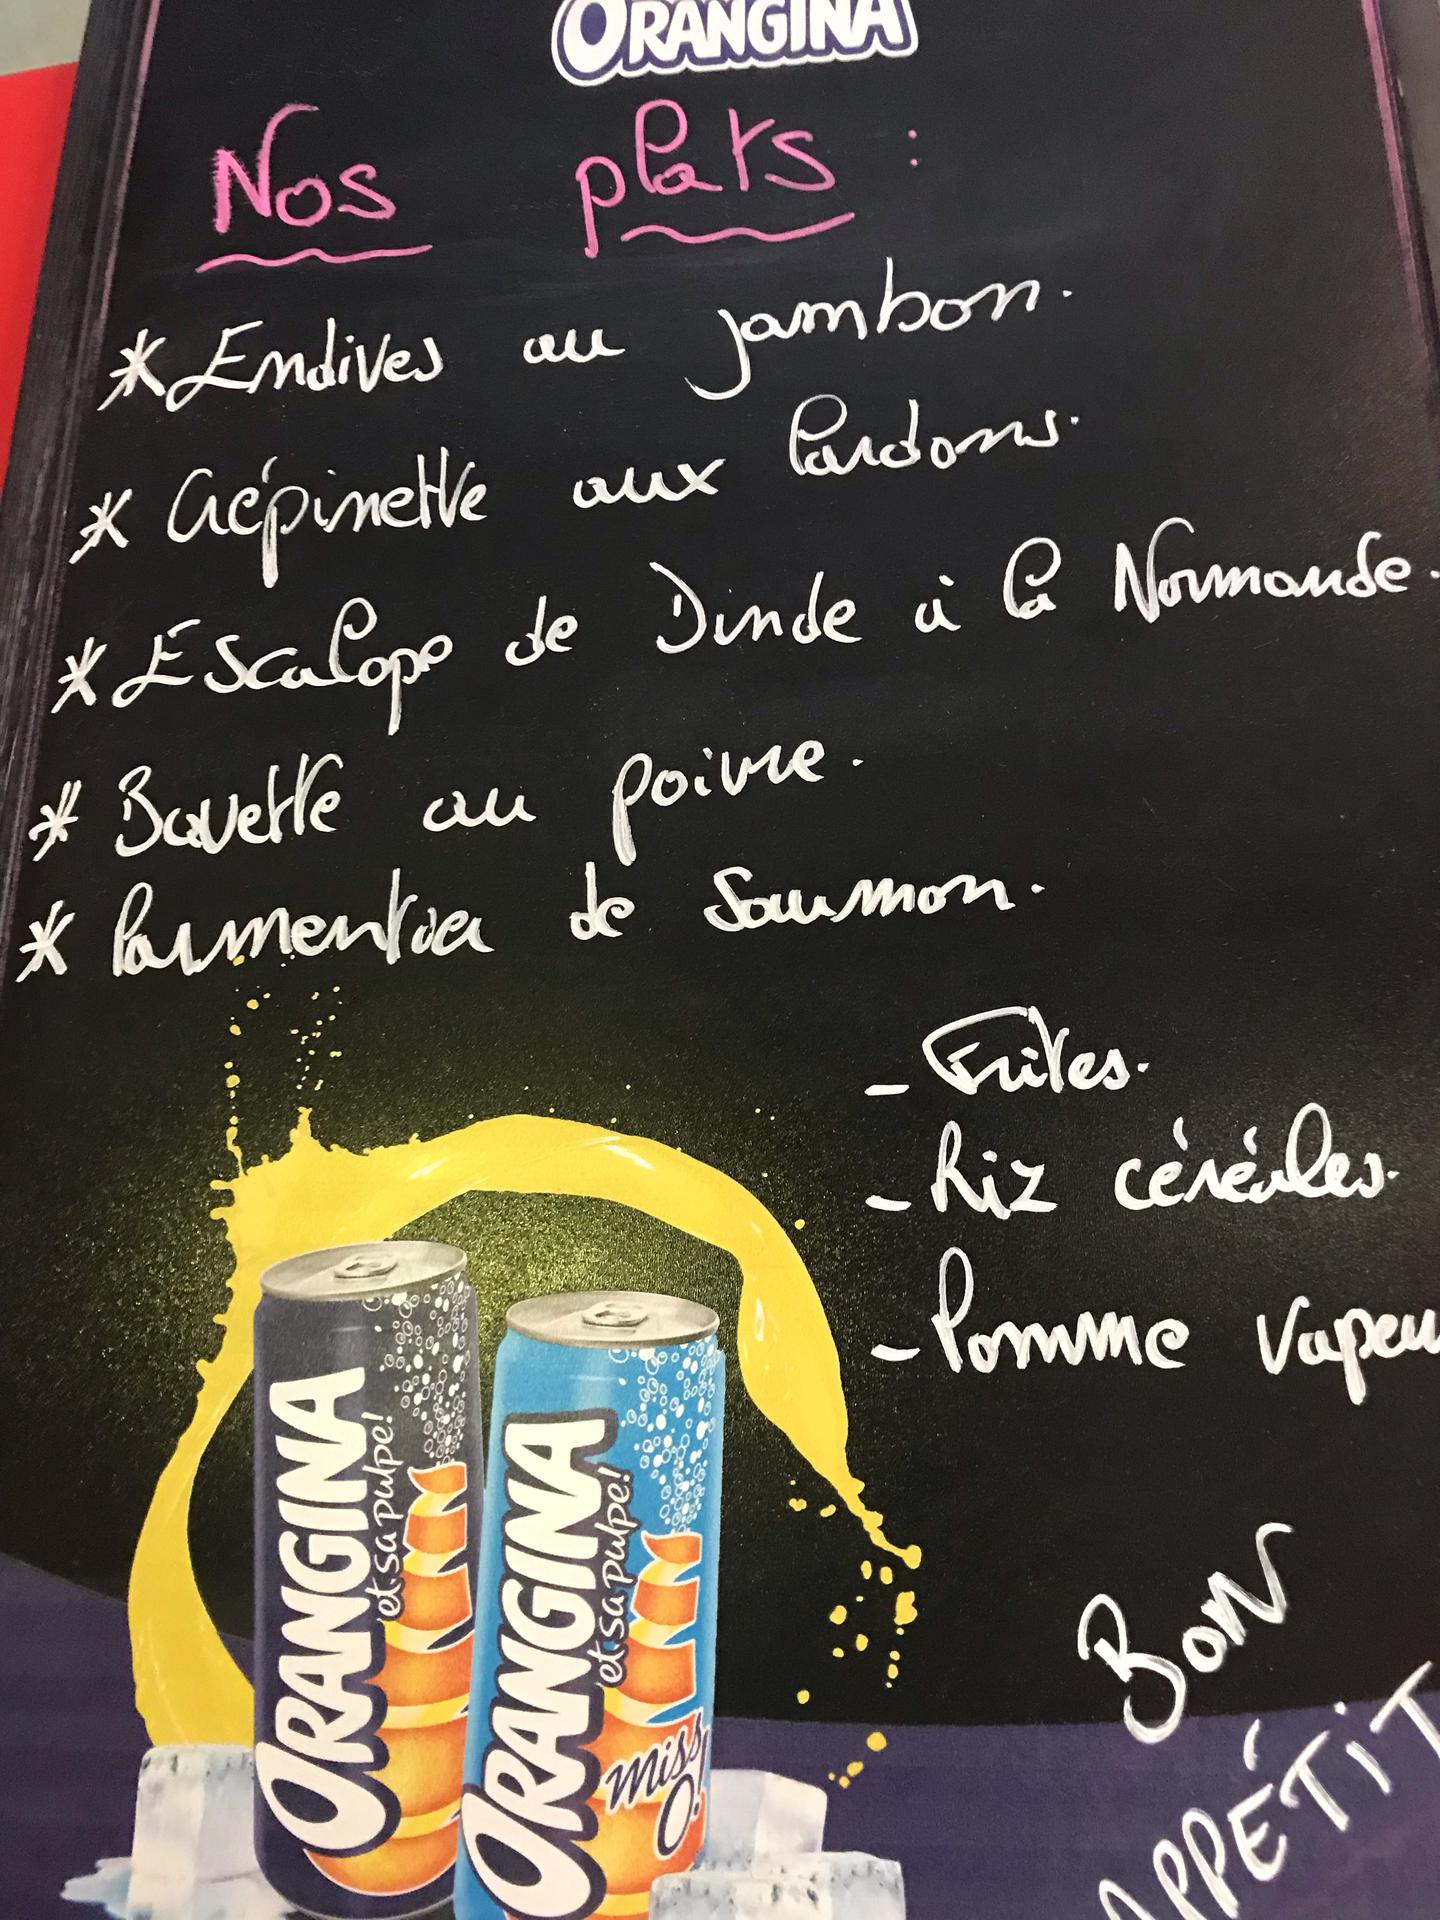 ORANGINA
Nos plats :
* Endives au jambon.
* Crépinette aux lardons.
* Escalope de Dinde à la Normande.
* Bavette au poivre.
* Parmentier de Saumon.
- Frites.
- Riz céréales.
- Pomme vapeu
BON
APPÉTIT
ORANGINA
et sa pulpe!
ORANGINA
et sa pulpe!
miss
O!